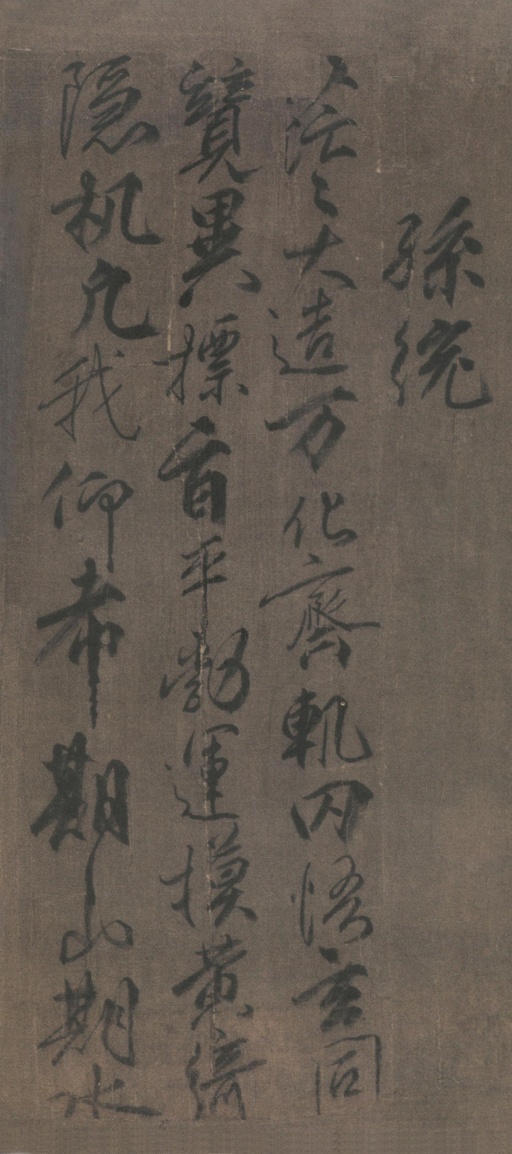 孫統
茫〻大造万化齊軌罔悟玄同
競異標旨平勃運模黃綺
隐机凡我仰希期山期水